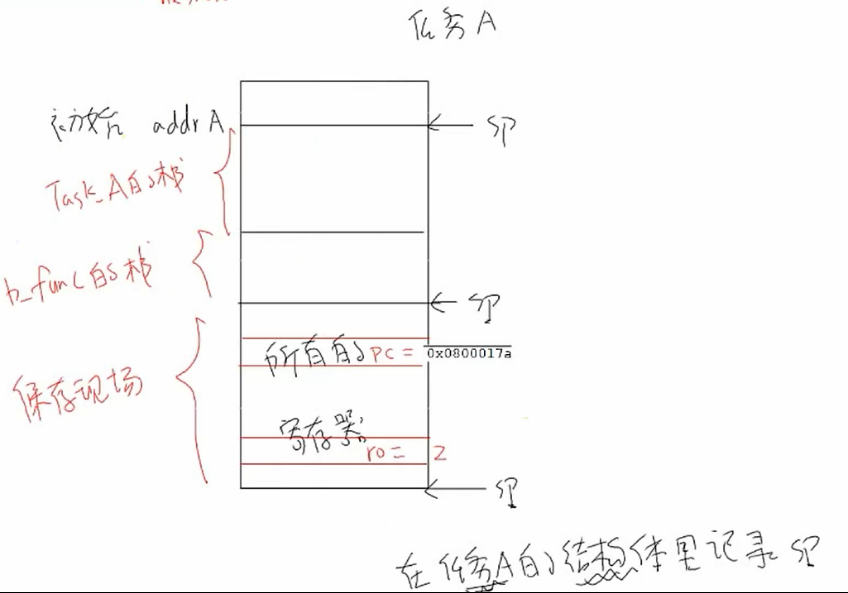 任务A
初始 addr A
SP
Task_A的栈
b_func的栈
SP
所有的 pc = 0x0800017a
保存现场
寄存器
r0 = 2
SP
在任务A的结构体里记录 SP